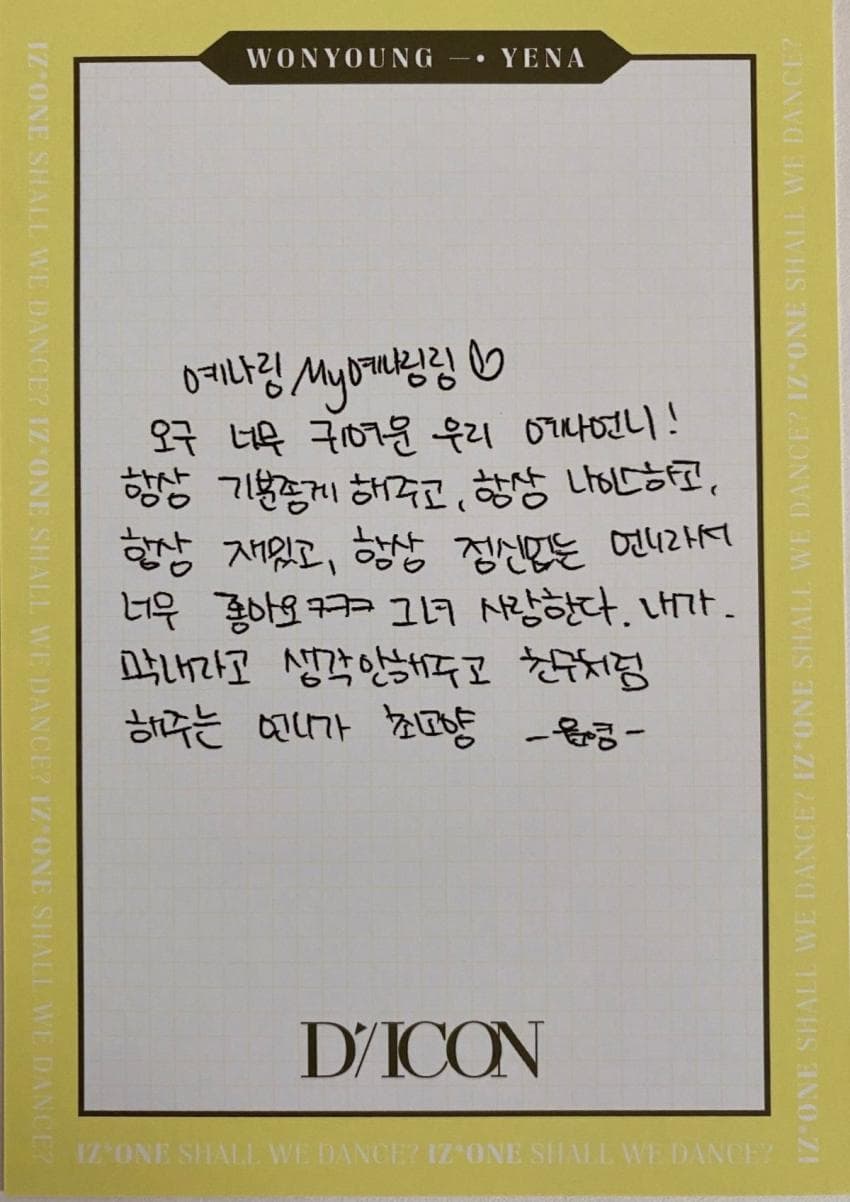 WONYOUNG —• YENA
예나링 My예나링링♡
오구 너무 귀여운 우리 예나언니!
항상 기분좋게 해주고, 항상 나이스하고,
항상 재밌고, 항상 정신없는 언니라서
너무 좋아요ㅋㅋㅋ 그녀 사랑한다. 내가.
막내라고 생각안해주고 친구처럼
해주는 언니가 최고양 -원영-
D'/ICON
IZ*ONE SHALL WE DANCE? IZ*ONE SHALL WE DANCE? IZ*ONE SHALL WE DANCE?
IZ*ONE SHALL WE DANCE? IZ*ONE SHALL WE DANCE? IZ*ONE SHALL WE DANCE?
IZ*ONE SHALL WE DANCE? IZ*ONE SHALL WE DANCE?